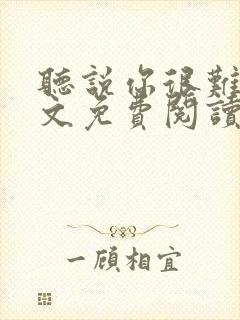 聽說你很難
文免費閱讀
一顧相宜